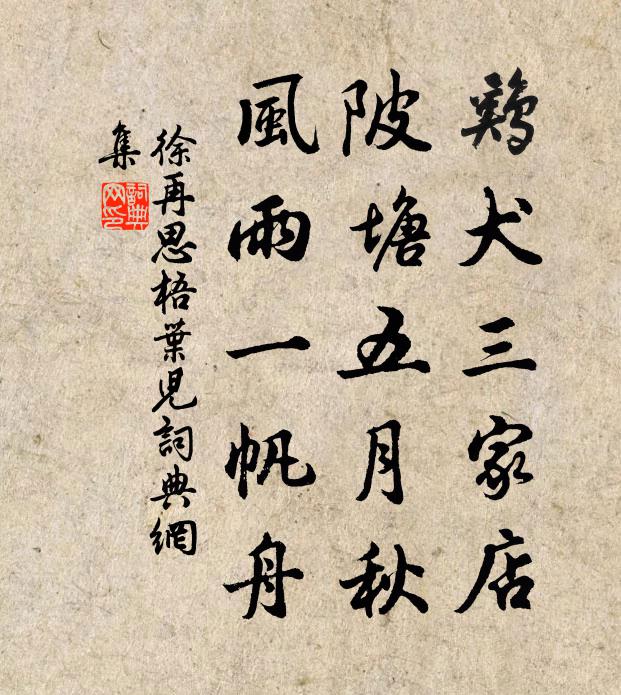 鷄犬三家店
陂塘五月秋
風雨一帆舟
徐再思梧葉児詞典網
集
詞典网印